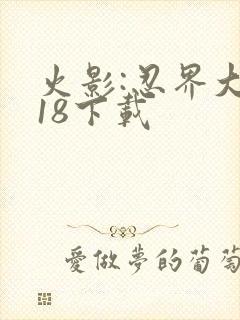 火影:忍界大
18下載
愛做夢的葡萄